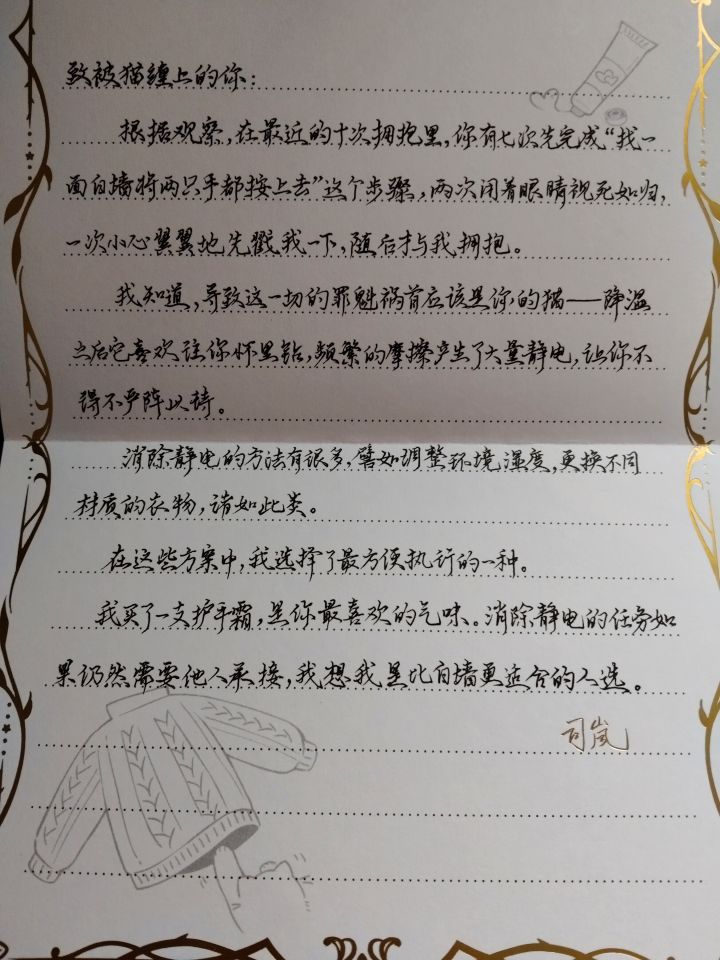 致被猫缠上的你：
根据观察，在最近的十次拥抱里，你有七次先完成“找一
面白墙将两只手都按上去”这个步骤，两次闭着眼睛视死如归，
一次小心翼翼地先戳我一下，随后才与我拥抱。
我知道，导致这一切的罪魁祸首应该是你的猫——降温
之后它喜欢往你怀里钻，频繁的摩擦产生了大量静电，让你不
得不严阵以待。
消除静电的方法有很多，譬如调整环境湿度，更换不同
材质的衣物，诸如此类。
在这些方案中，我选择了最方便执行的一种。
我买了一支护手霜，是你最喜欢的气味。消除静电的任务如
果仍然需要他人承接，我想我是比白墙更适合的人选。
司岚